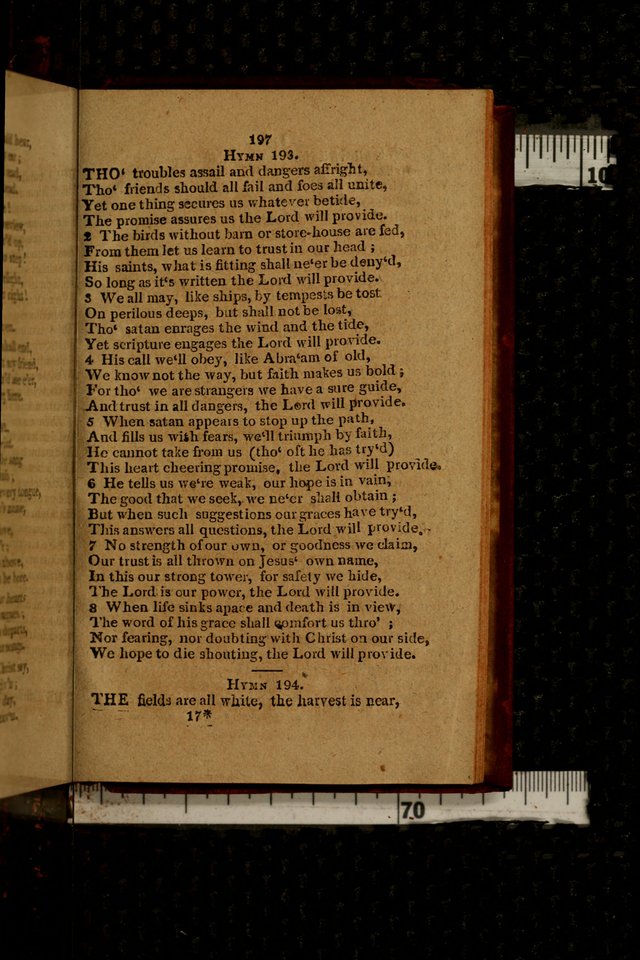 197
HYMN 193.
THO‘ troubles assail and dangers affright,
Tho‘ friends should all fail and foes all unite,
Yet one thing secures us whatever betide,
The promise assures us the Lord will provide.
2 The birds without barn or store-house are fed,
From them let us learn to trust in our head ;
His saints, what is fitting shall ne‘er be deny‘d,
So long as it‘s written the Lord will provide.
3 We all may, like ships, by tempests be tost
On perilous deeps, but shall not be lost,
Tho‘ satan enrages the wind and the tide,
Yet scripture engages the Lord will provide.
4 His call we‘ll obey, like Abra‘am of old,
We know not the way, but faith makes us bold ;
For tho‘ we are strangers we have a sure guide,
And trust in all dangers, the Lord will provide.
5 When satan appears to stop up the path,
And fills us with fears, we‘ll triumph by faith,
He cannot take from us (tho‘ oft he has try‘d)
This heart cheering promise, the Lord will provide.
6 He tells us we‘re weak, our hope is in vain,
The good that we seek, we ne‘er shall obtain ;
But when such suggestions our graces have try‘d,
This answers all questions, the Lord will provide.
7 No strength of our own, or goodness we claim,
Our trust is all thrown on Jesus‘ own name,
In this our strong tower, for safety we hide,
The Lord is our power, the Lord will provide.
8 When life sinks apace and death is in view,
The word of his grace shall comfort us thro’ ;
Nor fearing, nor doubting with Christ on our side,
We hope to die shouting, the Lord will provide.
HYMN 194.
THE fields are all white, the harvest is near,
17*
10
70